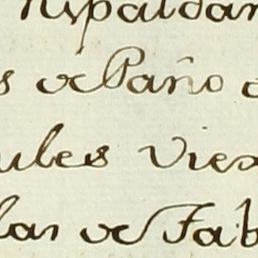 Respaldar
s de Paño
ules viex
las de Fab